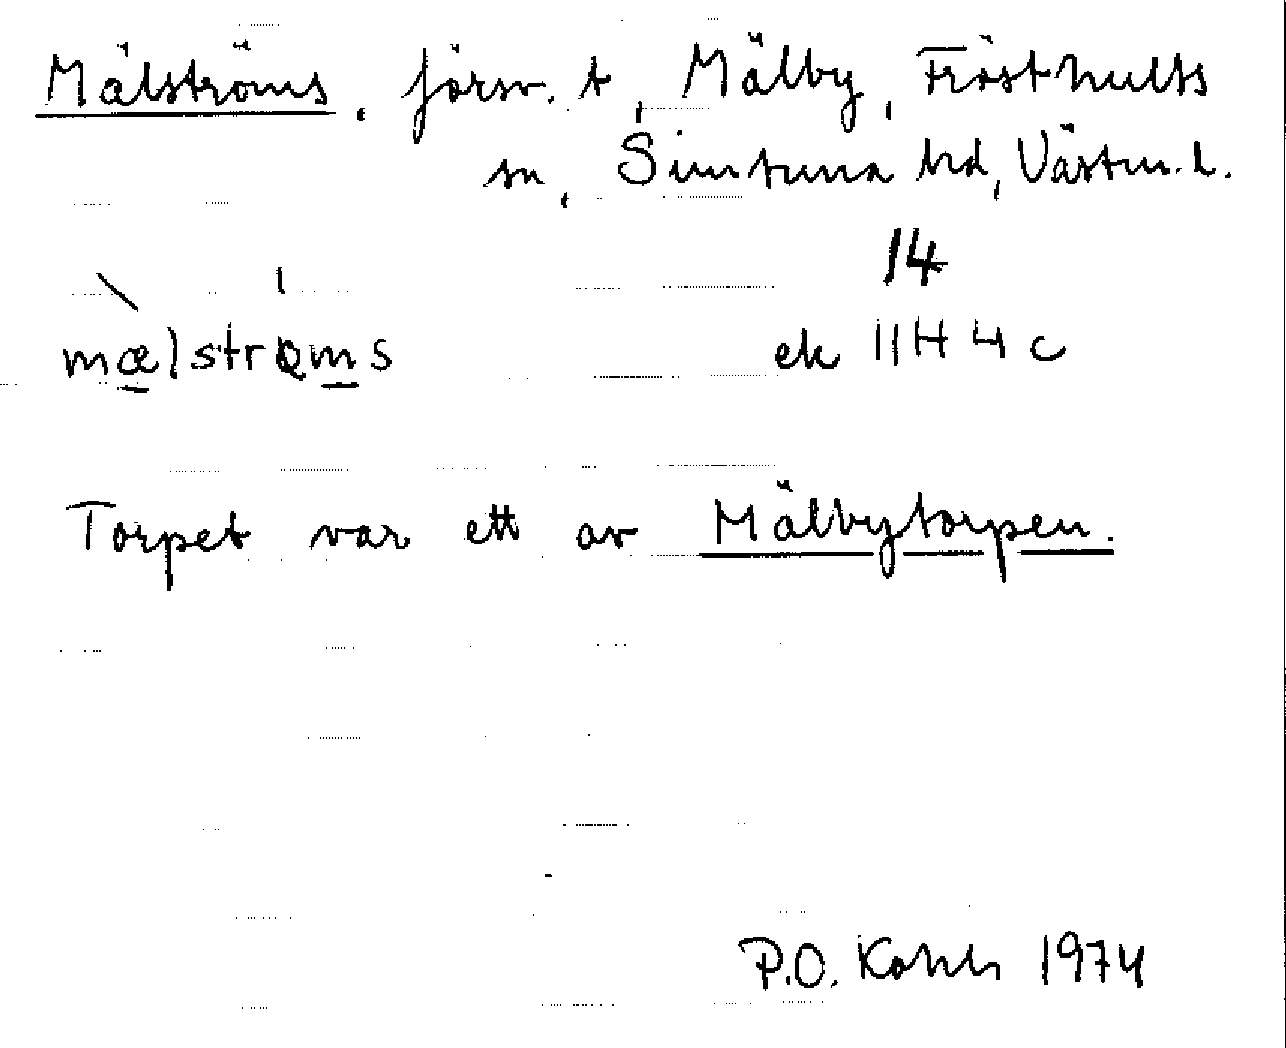 Mälströms, försv. t, Mälby, Frösthults
sn, Simtuna hd, Västm. l.
14
mælstrøms ek 11H 4 c
Torpet var ett av Mälbytorpen.
P.O. 1974